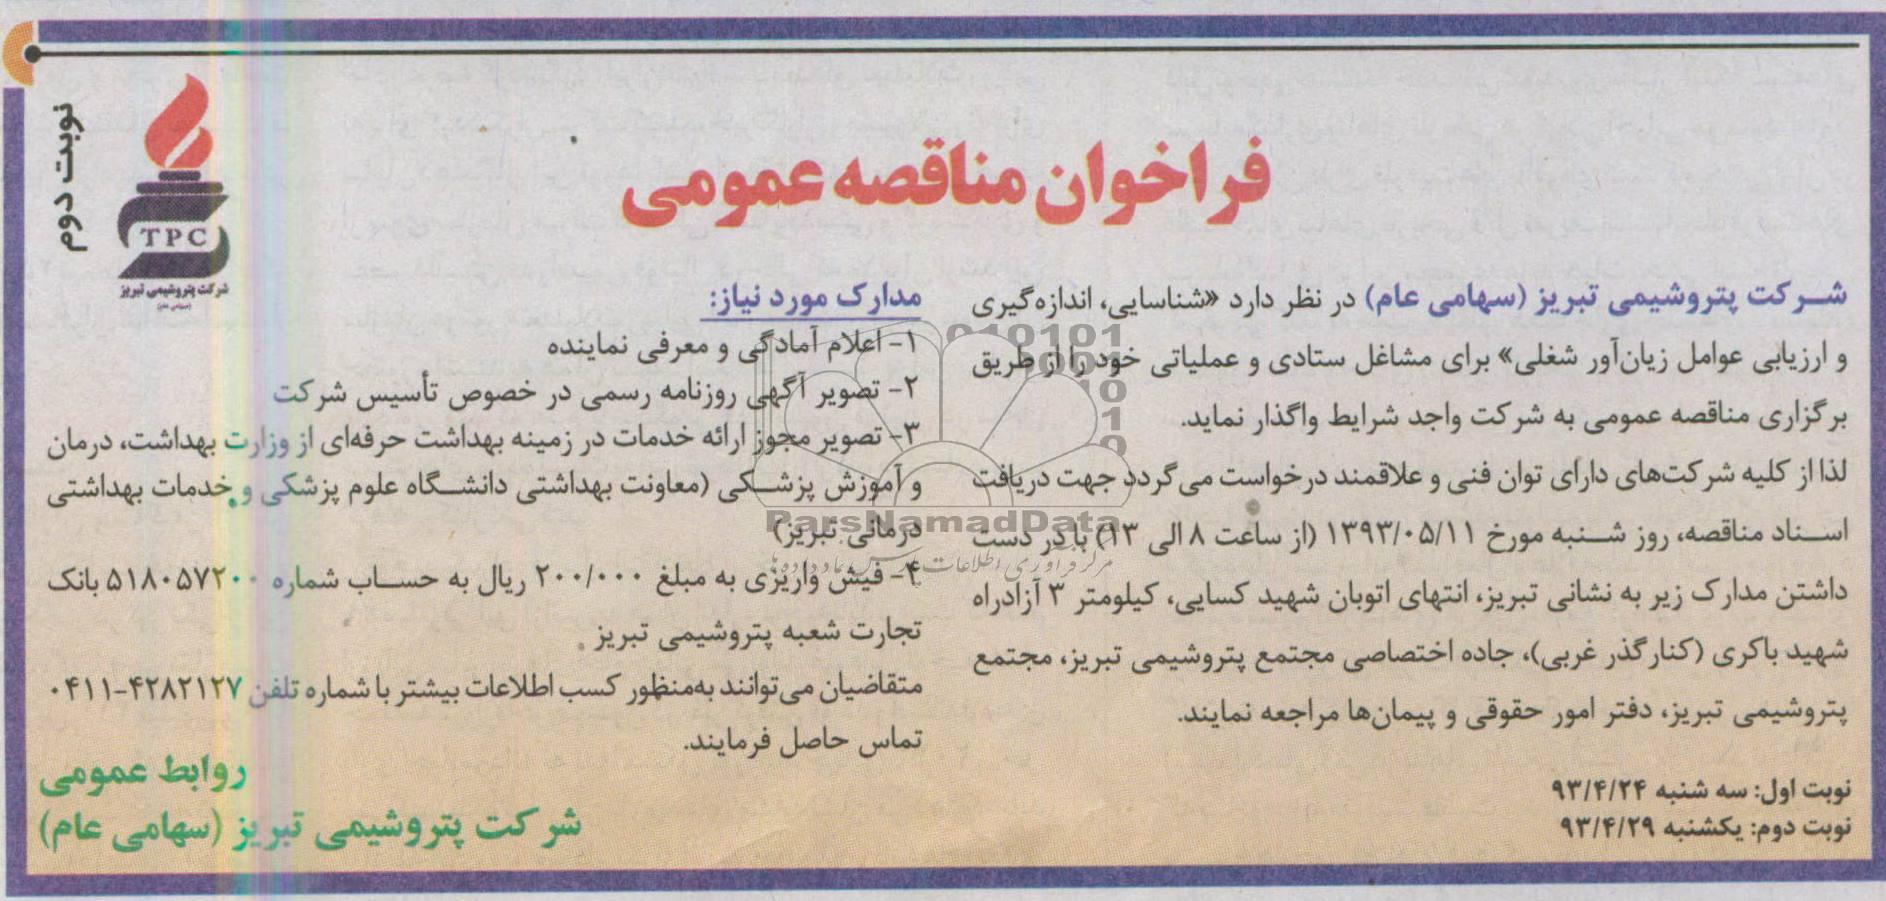 نوبت دوم
TPC
شرکت پتروشیمی تبریز
(سهامی عام)
فراخوان مناقصه عمومی
شرکت پتروشیمی تبریز (سهامی عام) در نظر دارد «شناسایی، اندازه‌گیری
و ارزیابی عوامل زیان‌آور شغلی» برای مشاغل ستادی و عملیاتی خود را از طریق
برگزاری مناقصه عمومی به شرکت واجد شرایط واگذار نماید.
لذا از کلیه شرکت‌های دارای توان فنی و علاقمند درخواست می‌گردد جهت دریافت
اسناد مناقصه، روز شنبه مورخ ۱۳۹۳/۰۵/۱۱ (از ساعت ۸ الی ۱۳) با در دست
داشتن مدارک زیر به نشانی تبریز، انتهای اتوبان شهید کسایی، کیلومتر ۳ آزادراه
شهید باکری (کنارگذر غربی)، جاده اختصاصی مجتمع پتروشیمی تبریز، مجتمع
پتروشیمی تبریز، دفتر امور حقوقی و پیمان‌ها مراجعه نمایند.
نوبت اول: سه شنبه ۹۳/۴/۲۴
نوبت دوم: یکشنبه ۹۳/۴/۲۹
مدارک مورد نیاز:
۱- اعلام آمادگی و معرفی نماینده
۲- تصویر آگهی روزنامه رسمی در خصوص تأسیس شرکت
۳- تصویر مجوز ارائه خدمات در زمینه بهداشت حرفه‌ای از وزارت بهداشت، درمان
و آموزش پزشکی (معاونت بهداشتی دانشگاه علوم پزشکی و خدمات بهداشتی
درمانی تبریز)
۴- فیش واریزی به مبلغ ۲۰۰/۰۰۰ ریال به حساب شماره ۵۱۸۰۵۷۲۰۰ بانک
تجارت شعبه پتروشیمی تبریز
متقاضیان می‌توانند به‌منظور کسب اطلاعات بیشتر با شماره تلفن ۴۲۸۲۱۲۷-۰۴۱۱
تماس حاصل فرمایند.
روابط عمومی
شرکت پتروشیمی تبریز (سهامی عام)
ParsNamadData